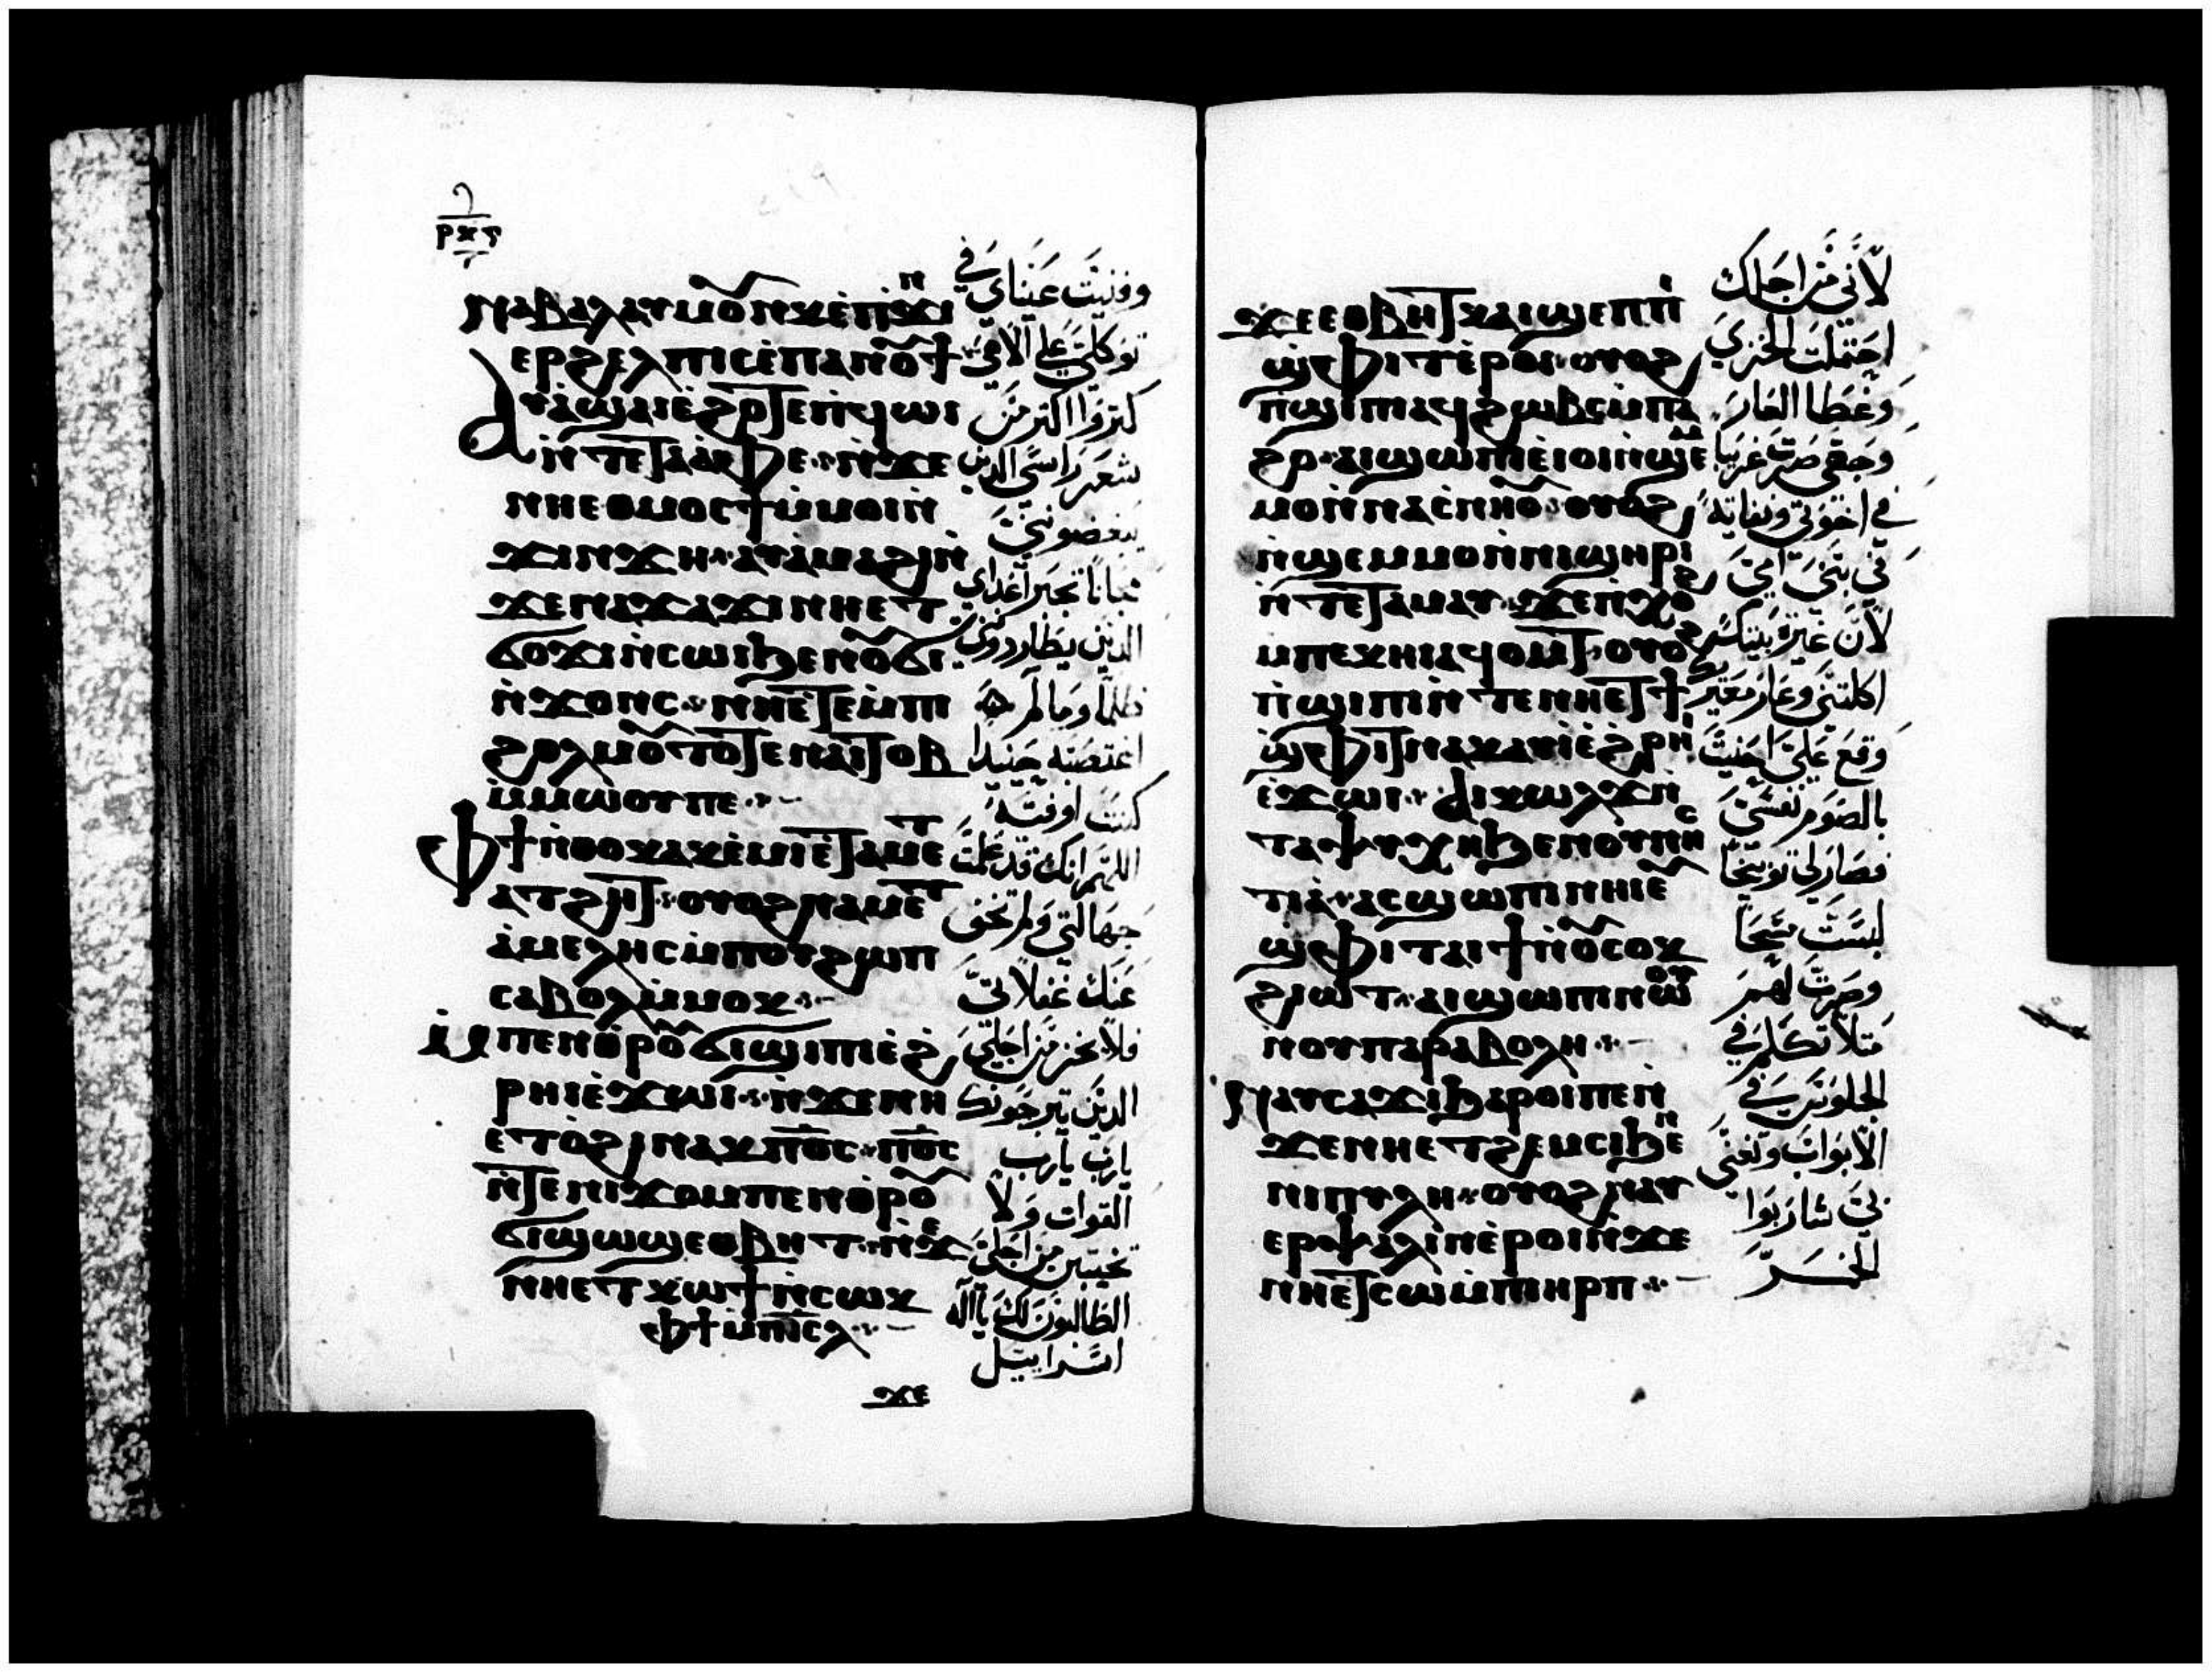 ⲛⲁⲃⲁⲗⲁⲩⲙⲟⲩⲛⲕⲉⲛϫⲓⲛ
ⲉⲣϩⲉⲗⲡⲓⲥⲉⲡⲁⲛⲟⲩϯ
ⲁⲩⲁϣⲁⲓⲉϩⲟⲧⲉⲛϥⲱⲓ
ⲛⲧⲉⲧⲁⲁⲫⲉ ⲛϫⲉ
ⲛⲏⲉⲑⲙⲟⲥϯⲙⲙⲟⲓⲛ
ϫⲓⲛϫⲏ ⲁⲩⲁⲙⲁϩⲓⲛ
ϫⲉⲛⲁϫⲁϫⲓⲛⲏⲉⲧ
ϭⲟϫⲓⲛⲥⲱⲓϧⲉⲛⲟⲩϭⲓ
ⲛϫⲟⲛⲥ ⲛⲏⲉⲧⲉⲙⲡⲓ
ϩⲟⲗⲙⲟⲩⲧⲟⲧⲉⲛⲁⲓⲧⲟⲃ
ⲙⲙⲱⲟⲩⲡⲉ
ⲫϯⲛⲑⲟⲕⲁⲕⲉⲙⲓⲉⲧⲁⲙⲉⲧ
ⲁⲧϩⲏⲧ ⲟⲩⲟϩⲛⲁⲙⲉⲧ
ⲁⲙⲉⲗⲏⲥⲙⲡⲟⲩϩⲱⲡ
ⲥⲁⲃⲟⲗⲙⲙⲟⲕ
ⲙⲡⲉⲛⲑⲣⲟⲩϭⲓϣⲓⲡⲓⲉϩ
ⲣⲏⲓⲉϫⲱⲓ ⲛϫⲉⲛⲏ
ⲉⲧⲟϩⲓⲛⲁⲕⲡ̅ⲟ̅ⲥ̅ ⲡ̅ⲟ̅ⲥ̅
ⲛⲧⲉⲛⲓϫⲟⲙⲡⲉⲛⲑⲣⲟⲩ
ϭⲓϣⲱϣⲉⲑⲃⲏⲧ ⲛϫⲉ
ⲛⲏⲉⲧⲕⲱϯⲛⲥⲱⲕ
ⲫϯⲙⲡⲓⲥⲗ
ϫⲉ
وفنيت عيناي في
توكلي علي الاهي
كتروا اكتر من
شعر راسي الدين
يبغضوني
اعداي
الدين يطاردوني
ظلما وما لم
اغتصبه حينيدا
كنت اوفيه
اللهم انك قد علمت
جهالتي ولم تخف
عنك غفلاتي
فلا يخز من اجلي
الدين يترجونك
يارب يارب
القوات ولا
من اجلي
الطالبون لك يا اله
اسراييل
ϫⲉⲉⲑⲃⲏⲧⲕⲁⲓϣⲉⲡⲡⲓ
ϣⲫⲓⲧⲉⲣⲟⲓ ⲟⲩⲟϩ
ⲡϣⲓⲡⲓⲁϥϩⲱⲃⲥⲙⲡⲁ
ϩⲟ ⲁⲓϣⲱⲡⲓⲉⲓⲟⲓⲛϣⲉ
ⲙⲟⲛⲛⲁⲥⲛⲏⲟⲩ ⲟⲩⲟϩ
ⲛϣⲉⲙⲙⲟⲛⲛⲓϣⲏⲣⲓ
ⲛⲧⲉⲧⲁⲙⲁⲩ ϫⲉⲡⲭⲟϩ
ⲙⲡⲉⲕⲏⲓⲁϥⲟⲙⲧ ⲟⲩⲟϩ
ⲛϣⲓⲡⲓⲛⲧⲉⲛⲏⲉⲧϯ
ϣⲫⲓⲧⲛⲁⲕⲁⲩⲓⲉϩⲣⲏⲓ
ⲉϫⲱⲓ ⲁⲓⲕⲱⲗϫⲛ
ⲧⲁⲯⲩⲭⲏϧⲉⲛⲟⲩⲛⲏⲥ
ⲧⲓⲁ ⲁⲥϣⲱⲡⲓⲛⲏⲓⲉⲩ
ϣⲫⲓⲧⲁⲓϯⲛⲟⲩⲥⲟⲕ
ϩⲓⲱⲧ ⲁⲓϣⲱⲡⲓⲛⲱⲟⲩ
ⲛⲟⲩⲡⲁⲣⲁⲃⲟⲗⲏ
ⲛⲁⲩⲥⲁϫⲓϧⲁⲣⲟⲓⲡⲉⲛ
ϫⲉⲛⲏⲉⲧϩⲉⲙⲥⲓϧⲉⲛ
ⲛⲓⲡⲩⲗⲏ ⲟⲩⲟϩⲛⲁⲩ
ⲉⲣⲯⲁⲗⲓⲛⲉⲣⲟⲓⲛϫⲉ
ⲛⲏⲉⲧⲥⲱⲙⲡⲓⲏⲣⲡ
لاني من اجلك
احتملت الخزي
وغطا العار
وجهي صرت غريبا
في اخوتي
في بني امي
لان غيرة بيتك
اكلتني وعار معيريك
وقع علي احنيت
بالصوم نفسي
فصار لي توبيخا
لبست مسحا
وصرت لهم
متلا تكلم في
الجلوس في
الابواب وتغني
بي شاربوا
الخمر